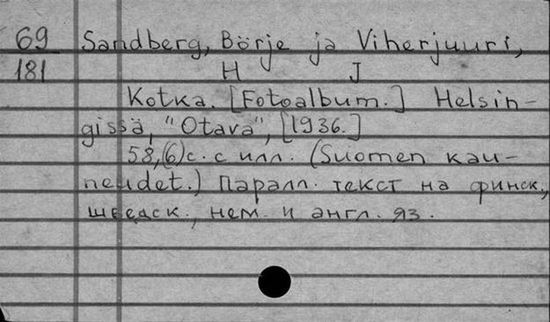 69 Sandberg, Börje ja Viherjuuri,
181 H J
Kotka. [Fotoalbum.] Helsin-
gissä, "Otava", [1936.]
58,(6)с. с илл. (Suomen kau-
neudet.) Паралл. текст на финск.,
шведск., нем. и англ. яз.